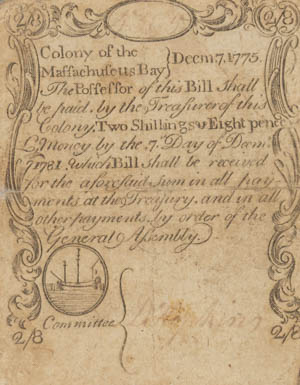 2/8 2/8
Colony of the } Decm 7. 1775.
Massachusetts Bay
The Possessor of this Bill shall
be paid by the Treasurer of this
Colony. Two Shillings & Eight pence
L. Money by the .7. Day of Decm.
1781. which Bill shall be received
for the aforesaid sum in all pay-
ments at the Treasury. and in all
other payments by order of the
General Assembly.
Committee {
2/8 2/8